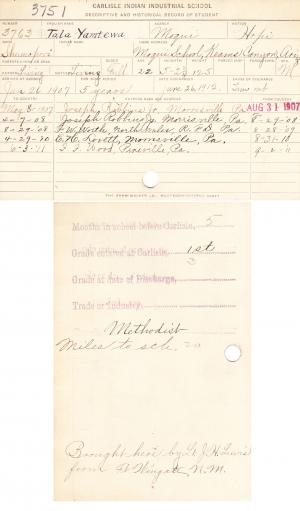 CARLISLE INDIAN INDUSTRIAL SCHOOL
3751
DESCRIPTIVE AND HISTORICAL RECORD OF STUDENT
NUMBER ENGLISH NAME AGENCY NATION
3763 Tala Yamtewa Moqui Hopi
Moqui School, Keams Canyon, Ariz
Living Living Full 22 5-2½ 125 M
Jan 26 1907 5 years June 26, 1912.
TO COUNTRY PATRONS NAME AND ADDRESS
May 8-1907 Joseph Robbins, Jr. Morrisville Pa. AUG 31 1907
4-7-08 Joseph Robbins Jr. Morrisville, Pa. 8-29-08
8-29-08 North Wales R.F.D. Pa. 8-28-09
4-29-10 E. H. Lovett, Morrisville, Pa. 8-31-10
6-3-11 Wood, Pa. 9-2-11
Months in school before Carlisle, 5
Grade entered at Carlisle, 1st
Grade at date of Discharge, 3
Trade or Industry,
Methodist
Miles to sch. 20
Brought here by Lt J. H. Lewis
from Ft Wingate, N.M.